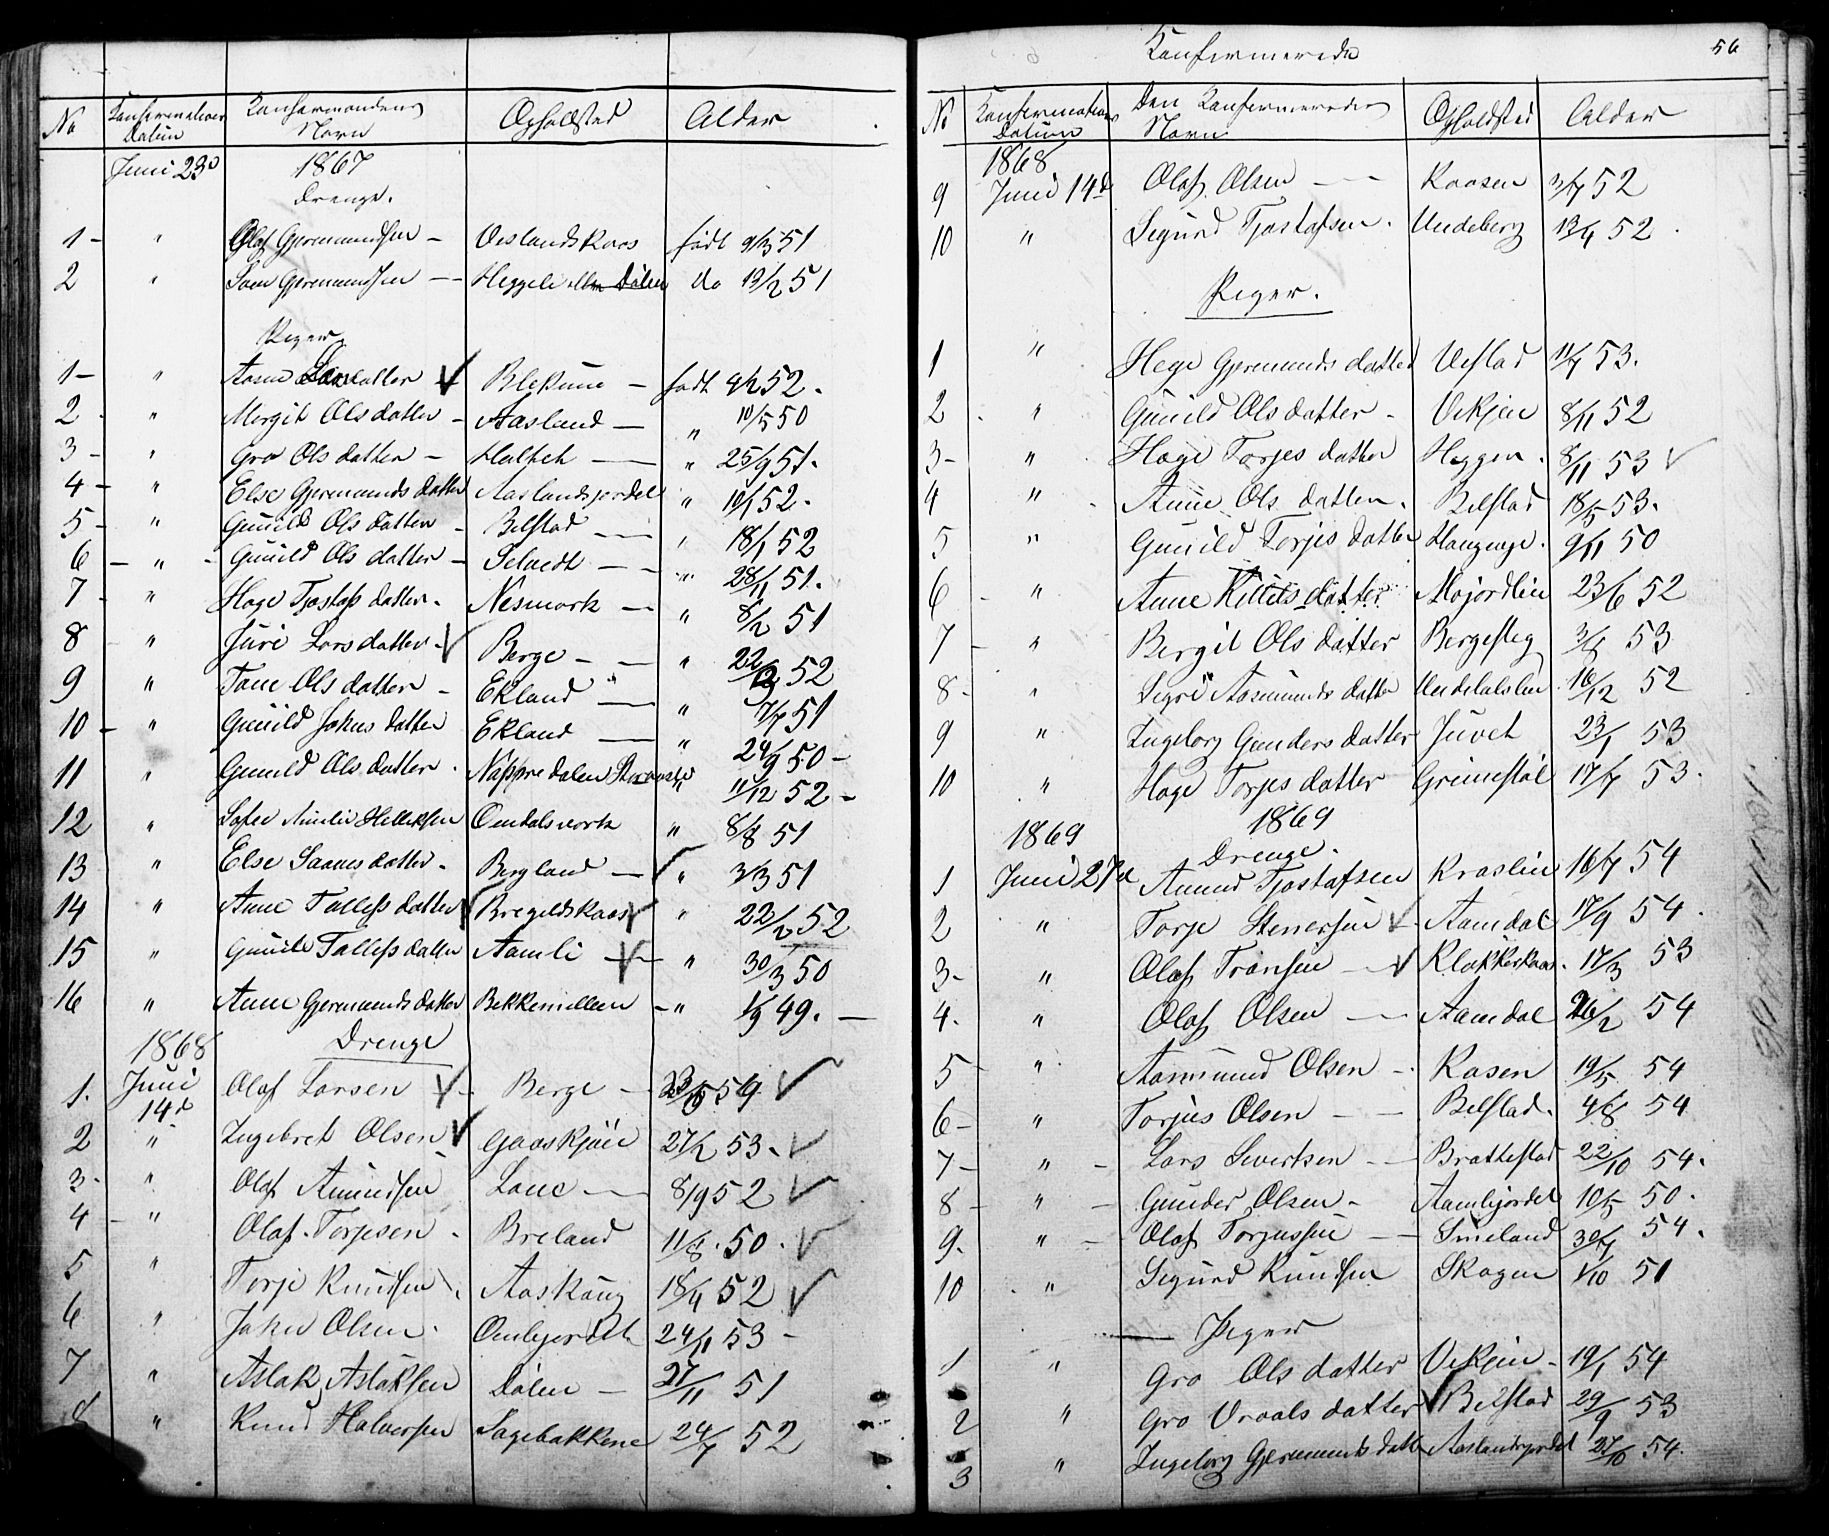 No Konfirmations Datum Konfirmandens Navn Opholdsted Alder
Juni 23d 1867
Drenge.
1 - " Olaf Gjermundsen - Veslandskaas født 9/3 51
2 " Gjermundsen - - Heggeli Dalen do 19/2 51
Piger
1 - " Aasne datter - født 52.
2 - " Margit Olsdatter - Aasland - " 10/5 50
3 - " Gro Olsdatter - - " 25/9 51.
4 - " Else Gjermundsdatter Aaslandsjordel " 52.
5 - " Gunild Olsdatter - Belstad - - " 18/1 52
6 - " - Gunild Olsdatter - Selvedt - - " 28/11 51.
7 - " Hage Tjostafsdatter. Nesmork - " 8/2 51
8 - " Juri Larsdatter. Berge - - " 22 52
9 " Tone Olsdatter - Ekland - " 7/7 51
10 - " Gunild Johnsdatter Ekland - " 24/9 50 -
11 " Gunild Olsdatter. Nappredalen " 11/12 52 -
12 " Helleksen Omdalsverk " 8/8 51
13 " Else datter. Bergland - " 3/3 51
14 " Anne Tallefsdatter " 22/2 52
15 " Gunild Tallefsdatter Aamli - " 30/3 50
16 " Anne Gjermundsdatter - " 49. -
1868 Drenge
1. Juni 14d Olaf Larsen Berge -
2 " Ingebret Olsen Gaaskjøli 27/2 53.
3 - " Olaf Amundsen - 8/9 52
4 - " Olaf Torjesen. Breland 11/8. 50.
5 " Torje Knudsen. Aaskaug 18/4 52
6 " John Olsen. 24/11 53 -
7 " Aslak Aslaksen Dalen - 27/11 51
8 " Knud Halvorsen Sagebakkene 24/7 52
Konfirmerede 56
No Konfirmations Datum Den Konfirmeredes Navn Opholdsted Alder
1868
9 Juni 14d Olaf Olsen - - Kaasen 3/7 52
10 " Sigurd Tjostafsen. Undeberg 13/4 52.
Piger.
1 " Hege Gjermundsdatter Vestad 11/7 53.
2 - " Gunild Olsdatter - Vekjen 8/11 52
3 - " Hage Torjesdatter Heggen. 8/11 53
4 " - Anne Olsdatter. Belstad 18/5 53.
5 " Gunild Torjesdatter Haugenge. 9/11 50
6 - " Anne Killetsdatter 23/6 52
7 - " Bergit Olsdatter Bergesteg 53
8 - " Sigri Aasmundsdatter 16/12 52
9 " Ingeborg Gundersdatter Juvet 23/1 53
10 " Hage Torjesdatter Greimestøl 17/7 53.
1869 1869
Drenge.
1 Juni 27d Amund Tjostafsen Kraslin 16/7 54
2 " Torje Stenersen Aamdal 17/9 54.
3 - " Olaf Transen - Klokkerkaas. 17/3 53
4. " Olaf Olsen - Aamdal 26/2 54
5 - " Aasmund Olsen - Kasen 19/5 54
6 - " Torjus Olsen - - Belstad. 4/8 54
7 - " - Lars Sivertsen - - Brattestad 22/10 54.
8 - " - Gunder Olsen - Aamlijordel 10/5 50.
9. " - Olaf Torjussen - - Smeland 30/7 54.
10 " Sigurd Knudsen Skogen 1/10 51
Piger
1 " Gro Olsdatter Vekjen - 19/1 54
2 " Gro Vraalsdatter Belstad 29/9 53
3 " Ingeborg Gjermundsdatter Aaslandsjordel 27/10 54.